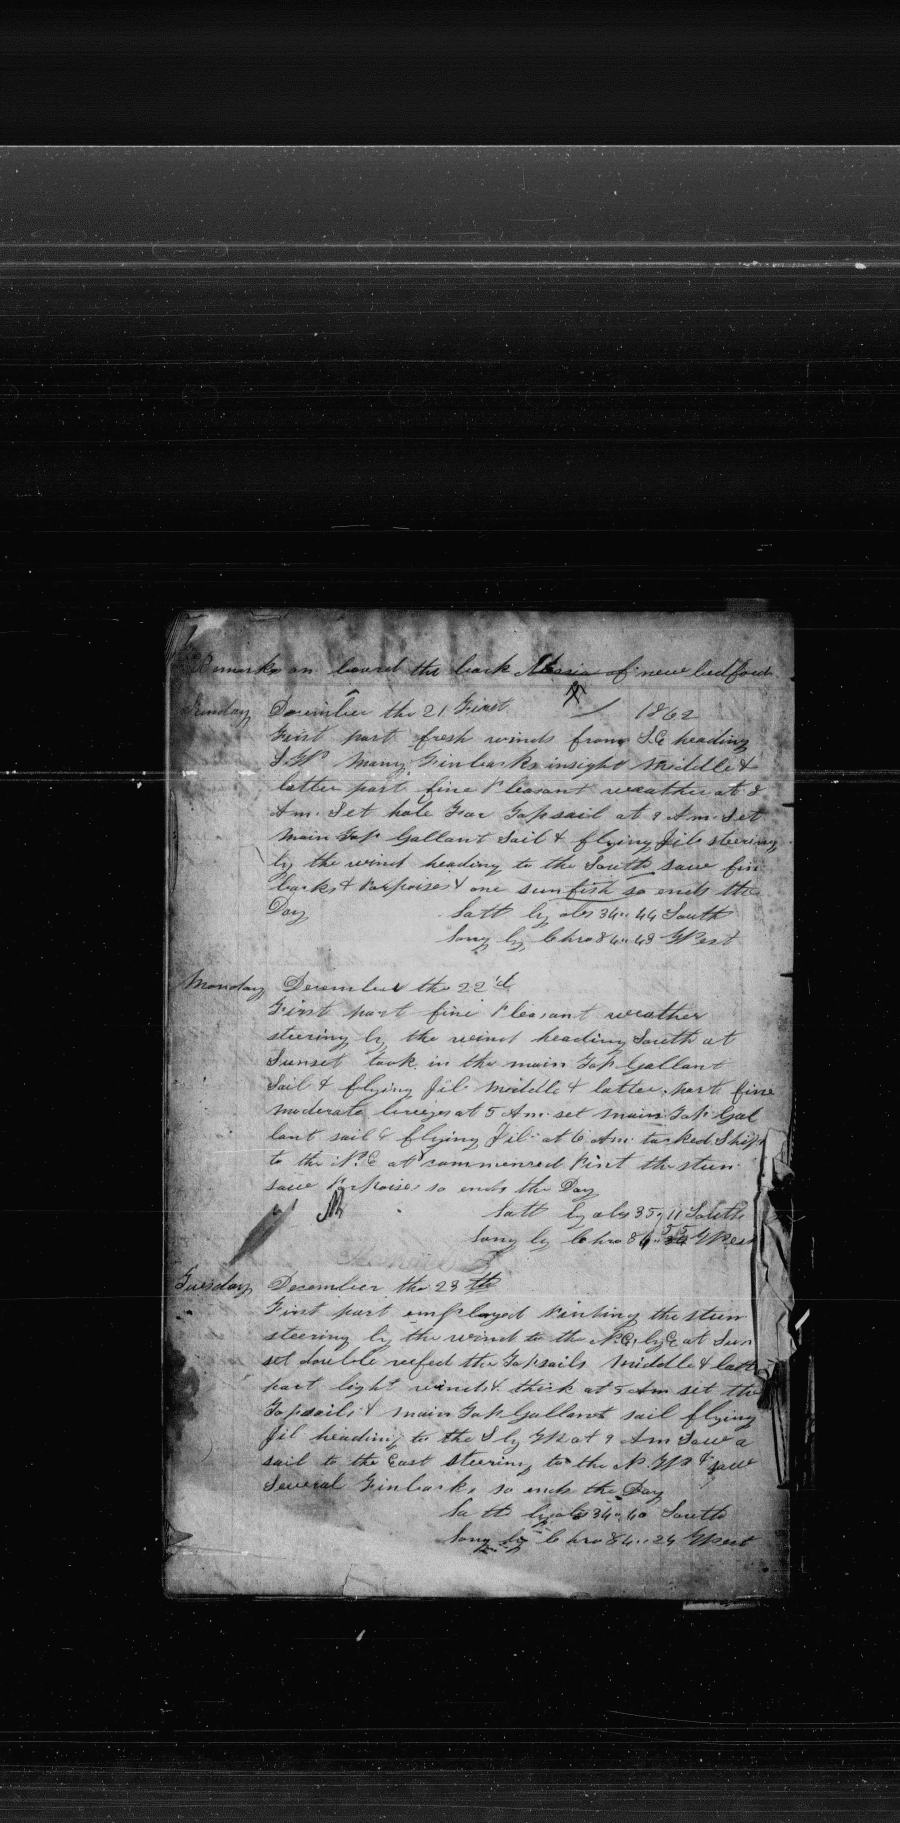 Remarks on board the bark of new bedford
Sunday December the 21 First 1862
First part fresh winds from S.E heading
S.W many Finbacks insight Middle &
latter part fine Pleasant weather at 8
Am. Set hole Four Topsail at 9 Am. Set
Main Top Gallant Sail & flying Jib steering
by the wind heading to the South saw fin
backs & Porpoises & one sunfish so ends the
Day Latt by obs 34.. 44 South
Long by Chro 84.. 49 West
Monday December the 22'd
First part fine Pleasant weather
steering by the wind heading South at
Sunset took in the main Top Gallant
Sail & flying Jib Middle & latter part fine
moderate breezes at 5 Am set Main Top Gal
lant sail & flying Jib at 6 Am tacked Ship
to the N.E at commenced Pint the stun
saw Porpoises so ends the Day
Latt by obs 35,, 11 South
Long by Chro 84.. 55 West
Tuesday December the 23 th
First part employed Pinting the stun
steering by the wind to the N.E, by E at Sun
set double reefed the Topsails Middle & latt
part light winds & thick at 5 Am set the
Topsails & main Top Gallant sail flying
Jib heading to the S by W at 9 Am Saw a
sail to the East steering to the N. W & saw
Several Finbacks so ends the Day
Latt by obs 34.. 40 South
Long by Chro 84.. 24 West